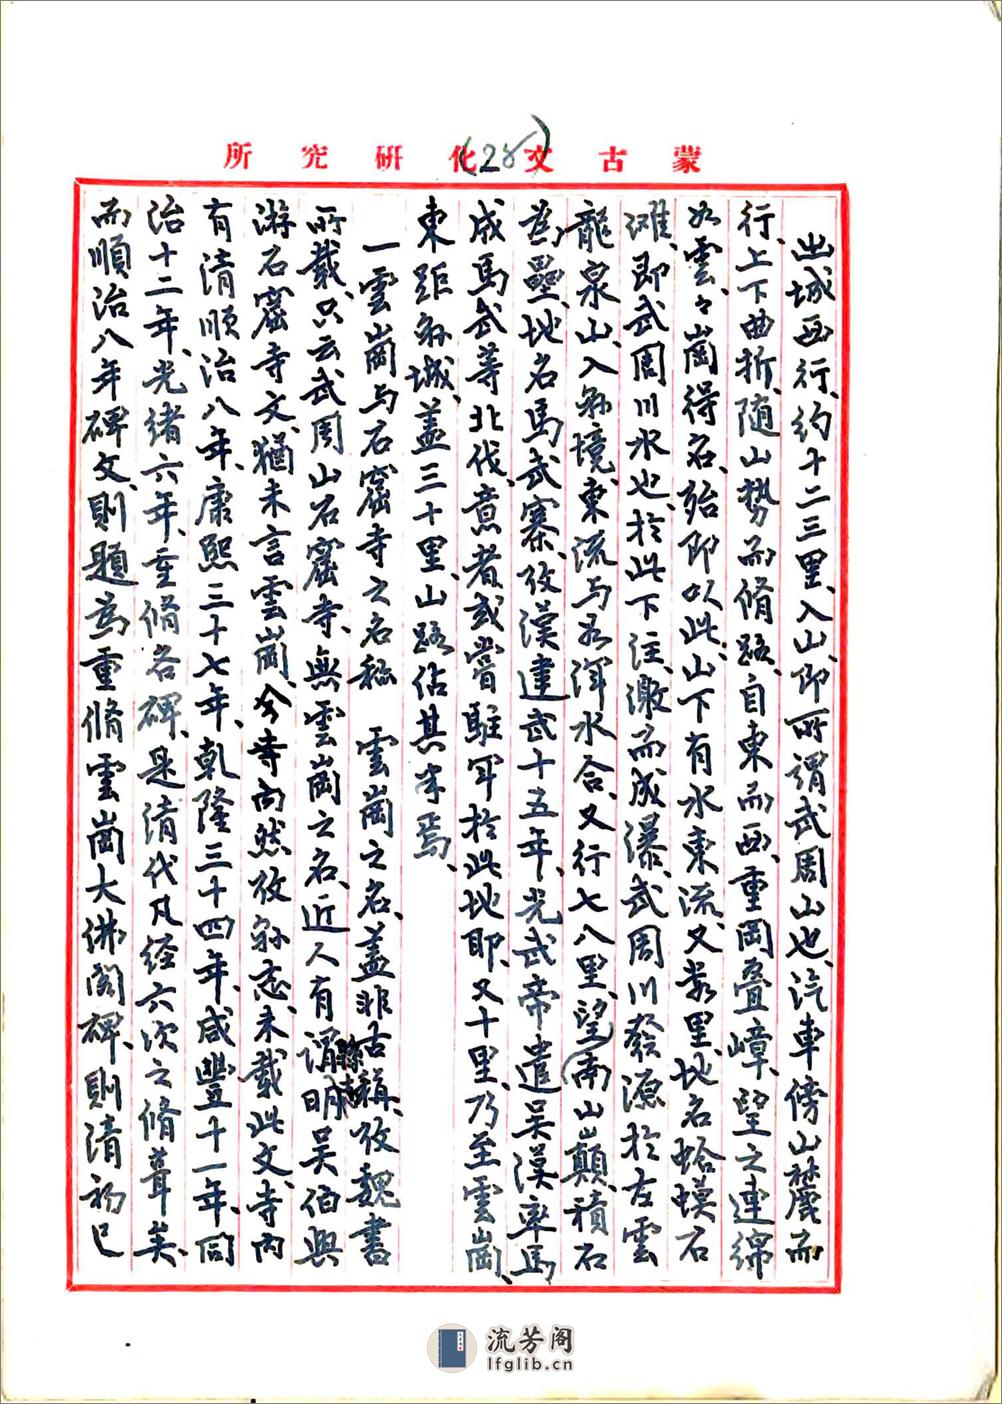 蒙古文化研究所
(28)
出城西行、约十二三里、入山、即所谓武周山也、汽車傍山麓而
行、上下曲折、随山势而脩路、自東而西、重岡叠嶂、望之連綿
如雲、々崗得名、殆即以此、山下有水東流、又数里、地名蛤蟆石
滩、即武周川水也、於此下注、激而成瀑、武周川發源於左雲
龍泉山、入弥境、東流与如渾水合、又行七八里、望南山山巔、積石
爲壘、地名馬武寨、攷漢建武十五年、光武帝遣吴漢率馬
成馬武等北伐、意者或嘗駐军於此地耶、又十里、乃至雲崗、
東距弥城、盖三十里、山路佔其半焉、
一雲崗与石窟寺之名称　雲崗之名、盖非古稱、攷魏書
所載、只云武周山石窟寺、無雲崗之名、近人有谓明吴伯與
縣志
游石窟寺文、猶未言雲崗、今寺尚然攷弥志、未載此文、寺内
有清順治八年、康熙三十七年、乾隆三十四年、咸豐十一年、同
治十二年、光緒六年、重脩各碑、是清代凡经六次之脩葺矣、
而順治八年碑文、則題爲重脩雲崗大佛阁碑、則清初已
流芳阁
lfglib.cn